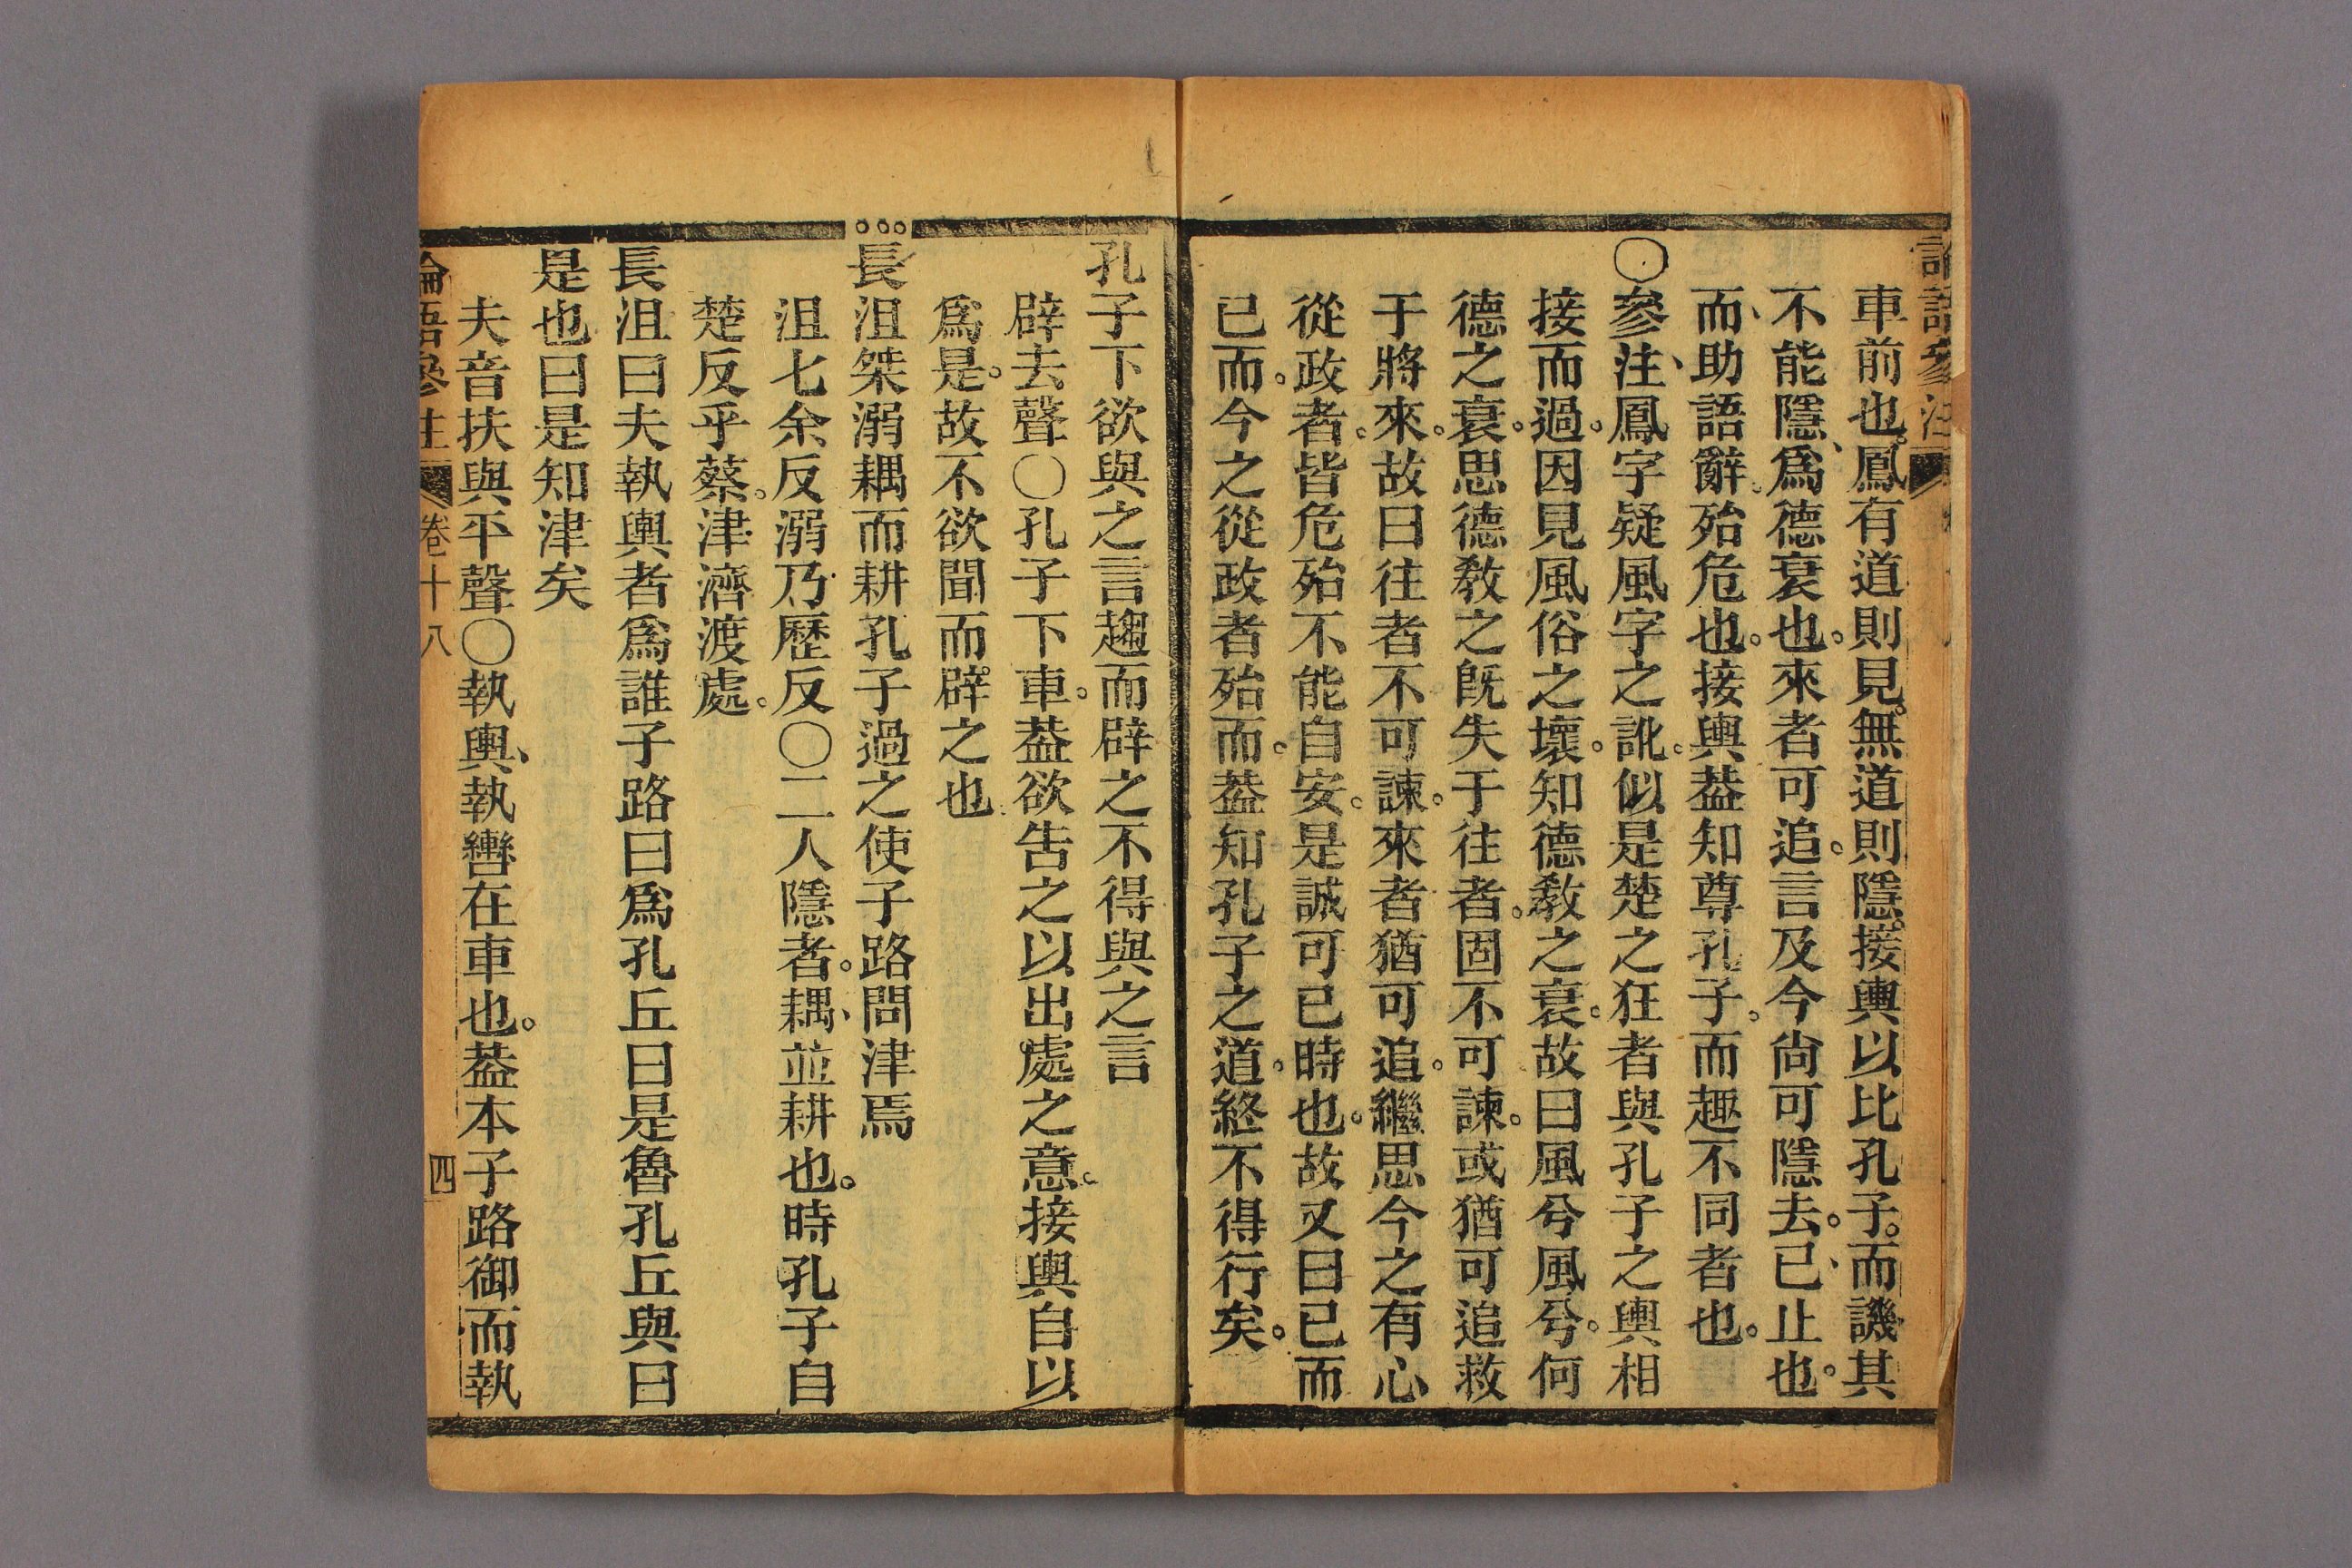 論語參注
車前也。鳳有道則見。無道則隱。接輿以比孔子。而譏其
不能隱、爲德衰也。來者可追。言及今尙可隱去。已、止也。
而、助語辭。殆危也。接輿葢知尊孔子。而趣不同者也。
〇參注、鳳字疑風字之訛。似是楚之狂者與孔子之輿相
接而過。因見風俗之壞。知德敎之衰。故曰風兮風兮。何
德之衰。思德敎之旣失于往者。固不可諫。或猶可追救
于將來。故曰往者不可諫。來者猶可追。繼思今之有心
從政者。皆危殆不能自安。是誠可已時也。故又曰已而
已而。今之從政者殆而。葢知孔子之道。終不得行矣。
孔子下欲與之言趨而辟之不得與之言
辟去聲〇孔子下車。葢欲告之以出處之意。接輿自以
爲是。故不欲聞而辟之也
長沮桀溺耦而耕孔子過之使子路問津焉
沮七余反溺乃歷反〇二人隱者。耦、並耕也。時孔子自
楚反乎蔡。津濟渡處。
長沮曰夫執輿者爲誰子路曰爲孔丘曰是魯孔丘與曰
是也曰是知津矣
夫音扶與平聲〇執輿、執轡在車也。葢本子路御而執
論語參注 卷十八 四